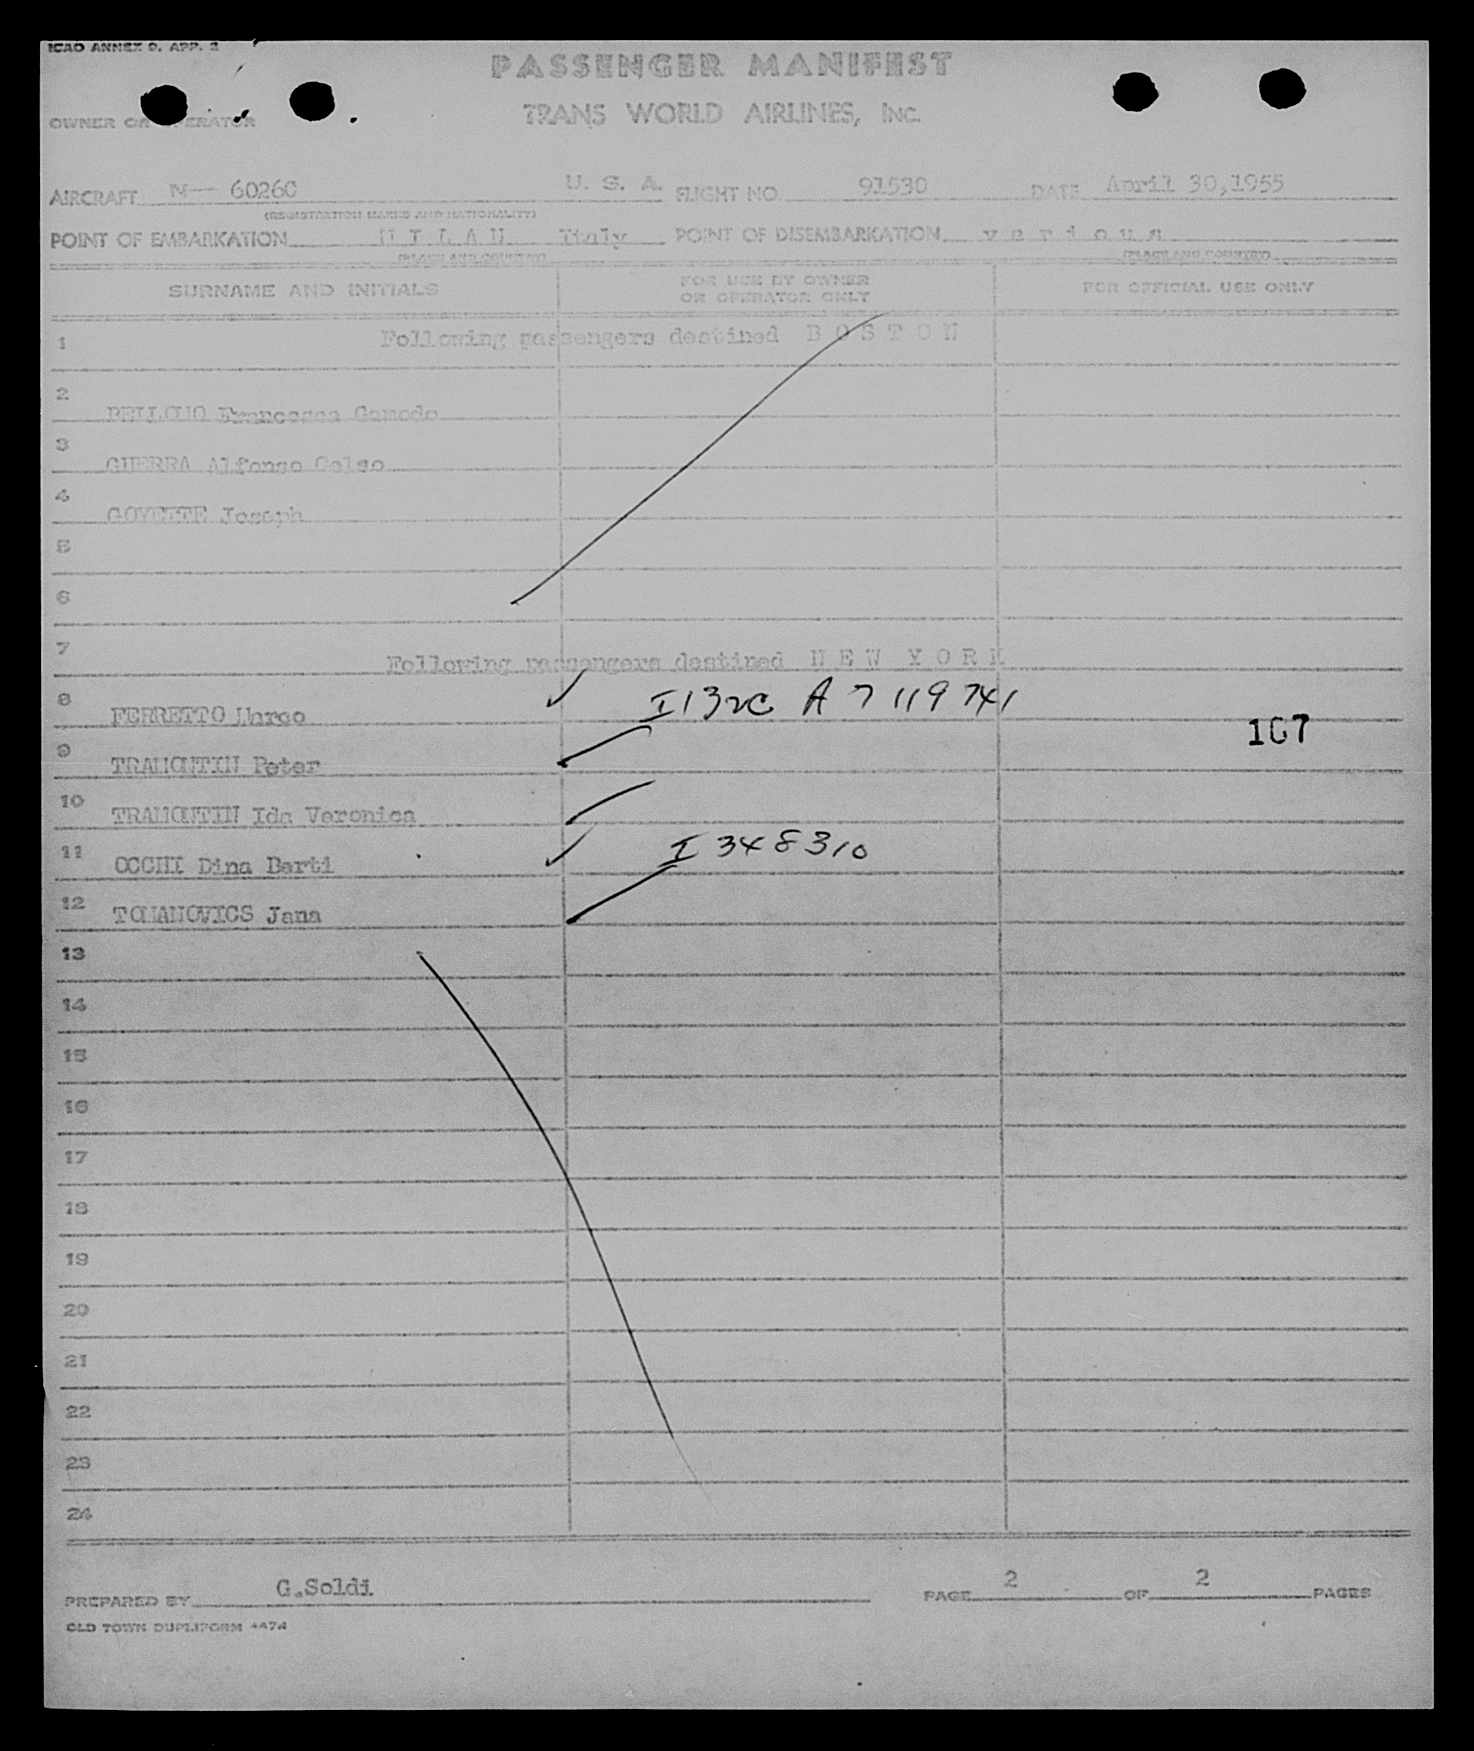 ICAO ANNEX 9. APP. 2
PASSENGER MANIFEST
OWNER OR OPERATOR TRANS WORLD AIRLINES, INC.
AIRCRAFT N— 60260 U. S. A. FLIGHT NO. 91530 DATE April 30,1955
(REGISTRATION MARKS AND NATIONALITY)
POINT OF EMBARKATION M I L A N Italy POINT OF DISEMBARKATION v a r i o u s
(PLACE AND COUNTRY) (PLACE AND COUNTRY)
SURNAME AND INITIALS FOR USE BY OWNER OR OPERATOR ONLY FOR OFFICIAL USE ONLY
1 Following passengers destined B O S T O N
2 Francesca
3 GUERRA Alfonso Celso
4 GOYETTE Joseph
5
6
7 Following passengers destined N E W Y O R K
8 FERRETTO Marco I132c A7 119 741
9 TRAMONTIN Peter
107
10 TRAMONTIN Ida Veronica
11 OCCHI Dina Berti I 348310
12 TOMANOVICS Jana
13
14
15
16
17
18
19
20
21
22
23
24
PREPARED BY G.Soldi PAGE 2 OF 2 PAGES
OLD TOWN DUPLIFORM